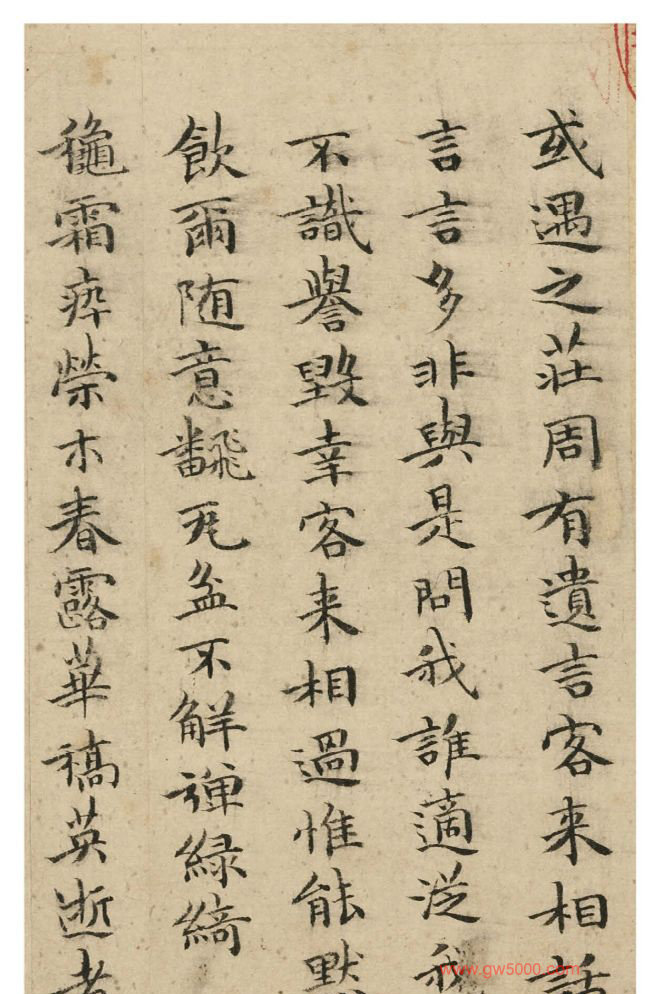 或遇之莊周有遺言客来相話
言言多非與是問我誰適從我
不識譽毀幸客来相過惟能默
飲爾随意飜瓦盆不解弹緑綺
穐霜瘁榮木春露華稿英逝者
www.gw5000.com